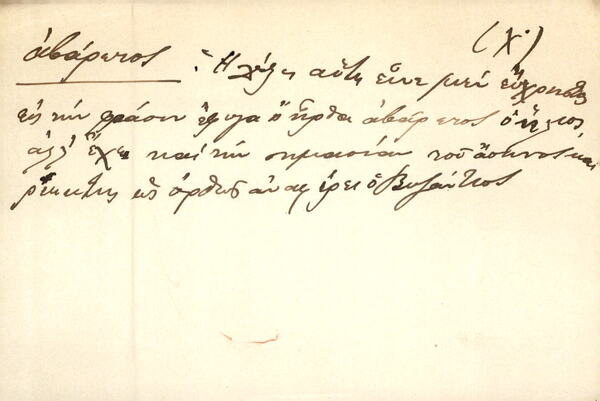 (χ.)
ἀβάρετος : Ἡ λέξις αὕτη εἶνε μὲν εὔχρηστος
εἰς τὴν φράσιν ἔφυγα ἢ ἦρθα ἀβάρετος ὁ ἥλιος,
ἀλλ' ἔχει καὶ τὴν σημασίαν τοῦ ἄοκνος καὶ
ὡς ὀρθῶς ἀναφέρει ὁ Βυζάντιος